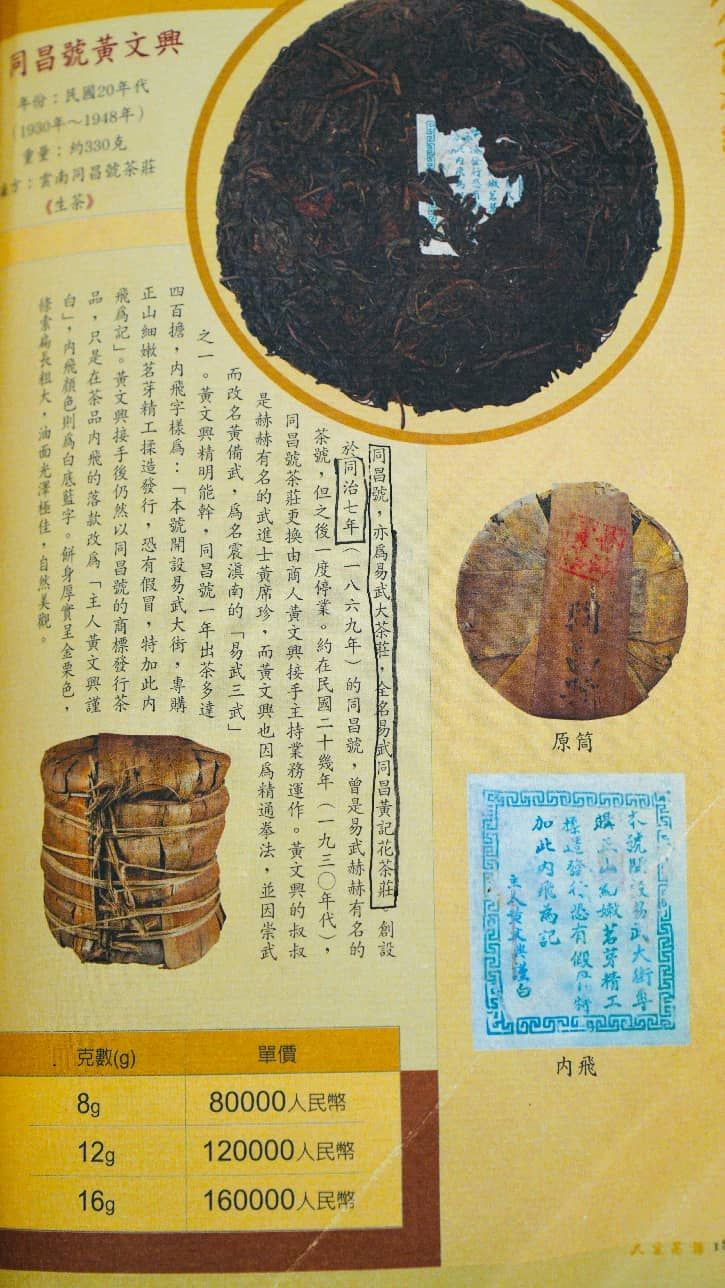 同昌號黃文興
年份：民國20年代
（1930年～1948年）
重量：約330克
方：雲南同昌號茶莊
《生茶》
同昌號，亦為易武大茶莊，全名易武同昌黃記花茶莊。創設
於同治七年（一八六九年）的同昌號，曾是易武赫赫有名的
茶號，但之後一度停業。約在民國二十幾年（一九三〇年代），
同昌號茶莊更換由商人黃文興接手主持業務運作。黃文興的叔叔
是赫赫有名的武進士黃席珍，而黃文興也因為精通拳法，並因崇武
而改名黃備武，為名震滇南的「易武三武」
之一。黃文興精明能幹，同昌號一年出茶多達
四百擔，內飛字樣為：「本號開設易武大街，專購
正山細嫩茗芽精工揉造發行，恐有假冒，特加此內
飛為記」。黃文興接手後仍然以同昌號的商標發行茶
品，只是在茶品內飛的落款改為「主人黃文興謹
白」，內飛顏色則為白底藍字。餅身厚實呈金栗色，
條索扁長粗大，油面光澤極佳，自然美觀。
原筒
本號開設易武大街專
購正山細嫩茗芽精工
揉造發行恐有假冒特
加此內飛為記
主人黃文興謹白
內飛
克數(g) 單價
8g 80000人民幣
12g 120000人民幣
16g 160000人民幣